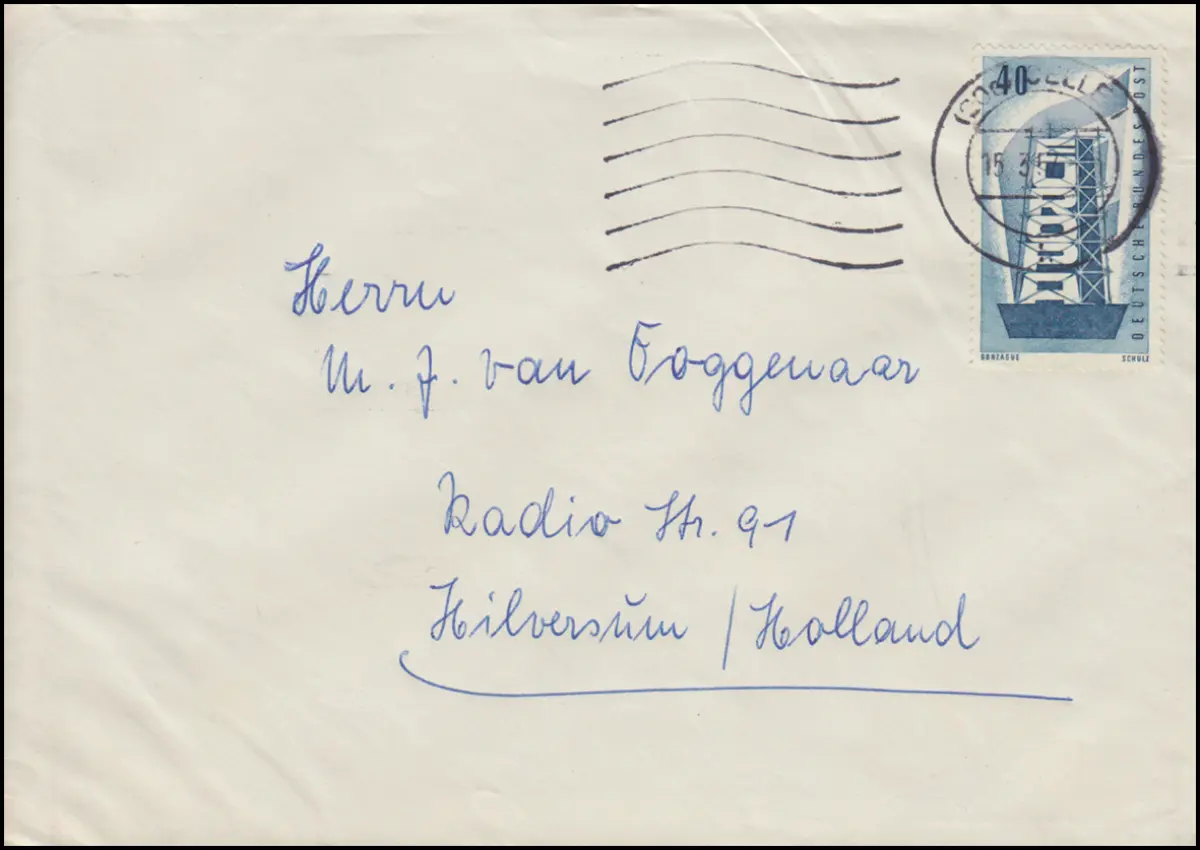 40
CELLE
15.3.57
DEUTSCHE BUNDESPOST
GONZAGUE
SCHULZ
Herrn
M. J. van Toggenaar
Radio Str. 91
Hilversum / Holland